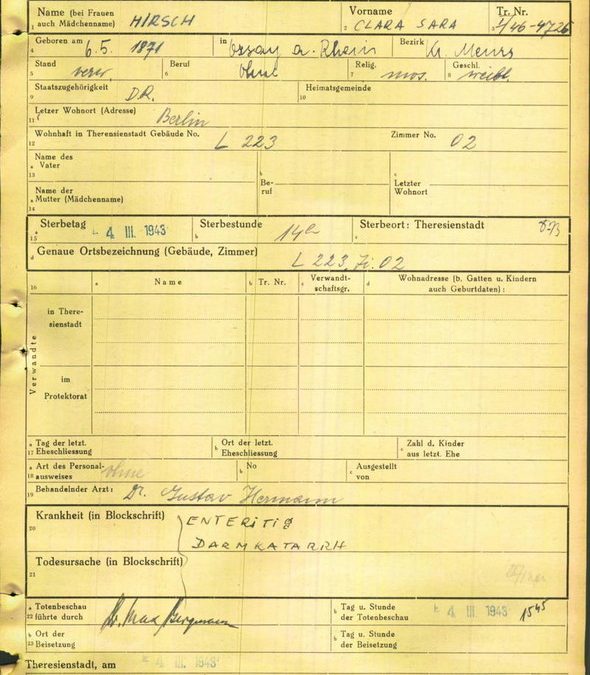 Name (bei Frauen auch Mädchenname) HIRSCH Vorname CLARA SARA Tr. Nr. I/46-4725
Geboren am 6.5. 1871 in a. Rhein Bezirk Kr. Meurs
Stand verw. Beruf ohne Relig. mos. Geschl. weibl.
Staatszugehörigkeit D.R. Heimatsgemeinde
Letzer Wohnort (Adresse) Berlin
Wohnhaft in Theresienstadt Gebäude No. L 223 Zimmer No. 02
Name des Vater Beruf Letzter Wohnort
Name der Mutter (Mädchenname)
Sterbetag 4 III. 1943 Sterbestunde 14h Sterbeort: Theresienstadt
Genaue Ortsbezeichnung (Gebäude, Zimmer) L 223, Zi. 02
Name Tr. Nr. Verwandtschaftsgr. Wohnadresse (b. Gatten u. Kindern auch Geburtdaten):
Verwandte
in Theresienstadt
im Protektorat
Tag der letzt. Eheschliessung Ort der letzt. Eheschliessung Zahl d. Kinder aus letzt. Ehe
Art des Personalausweises ohne No Ausgestellt von
Behandelnder Arzt: Dr. Gustav Hermann
Krankheit (in Blockschrift) ENTERITIS
DARMKATARRH
Todesursache (in Blockschrift)
Totenbeschau führte durch Dr. Max Bergmann Tag u. Stunde der Totenbeschau 4 III. 1943 15 45
Ort der Beisetzung Tag u. Stunde der Beisetzung
Theresienstadt, am 4 III. 1943